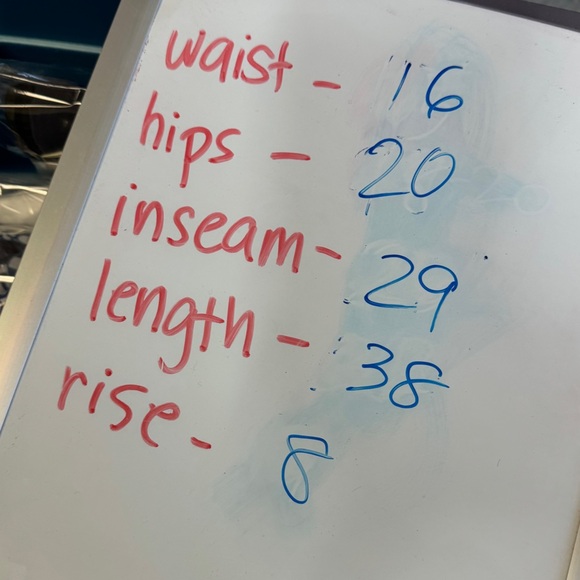 waist - 16
hips - 20
inseam - 29
length - 38
rise - 8